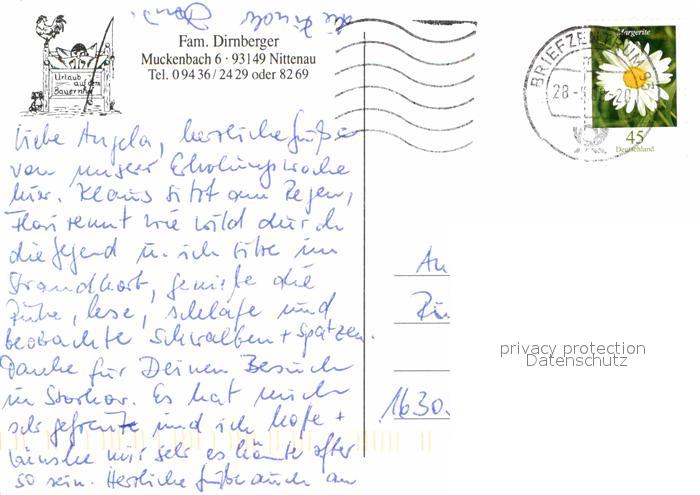 die Kinder
Fam. Dirnberger
Muckenbach 6 · 93149 Nittenau
Tel. 0 94 36 / 24 29 oder 82 69
Urlaub
auf dem
Bauernhof
Margerite
BRIEFZENTRUM 93
28
45
Deutschland
Liebe Angela, herzliche Grüße
von unserer Erholungswoche
hier. Klaus sitzt am Regen,
Flori rennt wie wild durch
die Gegend u. ich sitze im
Strandkorb, genieße die
Ruhe, lese, schlafe und
beobachte Schwalben + Spatzen.
Danke für Deinen Besuch
in. Es hat mich
sehr gefreut und ich hoffe +
wünsche mir sehr es könnte öfter
so sein. Herzliche Grüße auch an
An
1630
privacy protection
Datenschutz